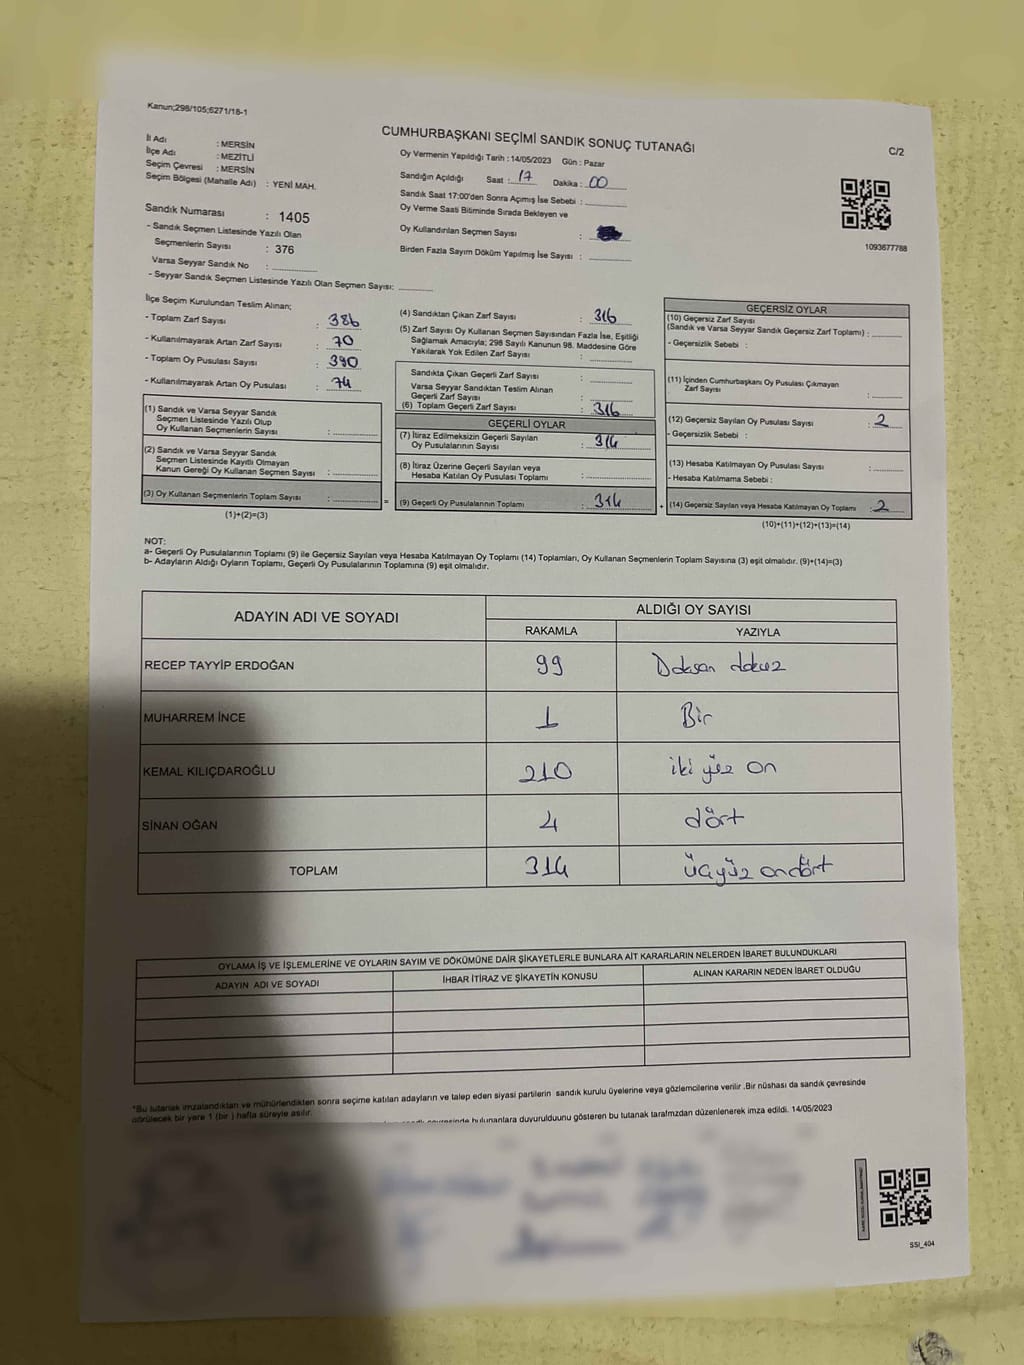 Kanun;298/105;6271/18-1
CUMHURBAŞKANI SEÇİMİ SANDIK SONUÇ TUTANAĞI
C/2
İl Adı : MERSİN
İlçe Adı : MEZİTLİ
Seçim Çevresi : MERSİN
Seçim Bölgesi (Mahalle Adı) : YENİ MAH.
Sandık Numarası : 1405
- Sandık Seçmen Listesinde Yazılı Olan
Seçmenlerin Sayısı : 376
Varsa Seyyar Sandık No :
- Seyyar Sandık Seçmen Listesinde Yazılı Olan Seçmen Sayısı:
Oy Vermenin Yapıldığı Tarih : 14/05/2023 Gün : Pazar
Sandığın Açıldığı Saat : 17 Dakika : 00
Sandık Saat 17:00'den Sonra Açımış İse Sebebi :
Oy Verme Saati Bitiminde Sırada Bekleyen ve
Oy Kullandırılan Seçmen Sayısı :
Birden Fazla Sayım Döküm Yapılmış İse Sayısı :
1093677788
İlçe Seçim Kurulundan Teslim Alınan;
- Toplam Zarf Sayısı : 386
- Kullanılmayarak Artan Zarf Sayısı : 70
- Toplam Oy Pusulası Sayısı : 390
- Kullanılmayarak Artan Oy Pusulası : 74
(1) Sandık ve Varsa Seyyar Sandık
Seçmen Listesinde Yazılı Olup
Oy Kullanan Seçmenlerin Sayısı :
(2) Sandık ve Varsa Seyyar Sandık
Seçmen Listesinde Kayıtlı Olmayan
Kanun Gereği Oy Kullanan Seçmen Sayısı :
(3) Oy Kullanan Seçmenlerin Toplam Sayısı : =
(1)+(2)=(3)
(4) Sandıktan Çıkan Zarf Sayısı : 316
(5) Zarf Sayısı Oy Kullanan Seçmen Sayısından Fazla İse, Eşitliği
Sağlamak Amacıyla; 298 Sayılı Kanunun 98. Maddesine Göre
Yakılarak Yok Edilen Zarf Sayısı :
Sandıkta Çıkan Geçerli Zarf Sayısı :
Varsa Seyyar Sandıktan Teslim Alınan
Geçerli Zarf Sayısı :
(6) Toplam Geçerli Zarf Sayısı : 316
GEÇERLİ OYLAR
(7) İtiraz Edilmeksizin Geçerli Sayılan
Oy Pusulalarının Sayısı : 314
(8) İtiraz Üzerine Geçerli Sayılan veya
Hesaba Katılan Oy Pusulası Toplamı :
(9) Geçerli Oy Pusulalarının Toplamı : 314 +
GEÇERSİZ OYLAR
(10) Geçersiz Zarf Sayısı
(Sandık ve Varsa Seyyar Sandık Geçersiz Zarf Toplamı) :
- Geçersizlik Sebebi :
(11) İçinden Cumhurbaşkanı Oy Pusulası Çıkmayan
Zarf Sayısı :
(12) Geçersiz Sayılan Oy Pusulası Sayısı : 2
- Geçersizlik Sebebi :
(13) Hesaba Katılmayan Oy Pusulası Sayısı :
- Hesaba Katılmama Sebebi :
(14) Geçersiz Sayılan veya Hesaba Katılmayan Oy Toplamı : 2
(10)+(11)+(12)+(13)=(14)
NOT:
a- Geçerli Oy Pusulalarının Toplamı (9) ile Geçersiz Sayılan veya Hesaba Katılmayan Oy Toplamı (14) Toplamları, Oy Kullanan Seçmenlerin Toplam Sayısına (3) eşit olmalıdır. (9)+(14)=(3)
b- Adayların Aldığı Oyların Toplamı, Geçerli Oy Pusulalarının Toplamına (9) eşit olmalıdır.
ADAYIN ADI VE SOYADI ALDIĞI OY SAYISI
RAKAMLA YAZIYLA
RECEP TAYYİP ERDOĞAN 99 Doksan dokuz
MUHARREM İNCE 1 Bir
KEMAL KILIÇDAROĞLU 210 iki yüz on
SİNAN OĞAN 4 dört
TOPLAM 314 üçyüz ondört
OYLAMA İŞ VE İŞLEMLERİNE VE OYLARIN SAYIM VE DÖKÜMÜNE DAİR ŞİKAYETLERLE BUNLARA AİT KARARLARIN NELERDEN İBARET BULUNDUKLARI
ADAYIN ADI VE SOYADI İHBAR İTİRAZ VE ŞİKAYETİN KONUSU ALINAN KARARIN NEDEN İBARET OLDUĞU
*Bu tutanak imzalandıktan ve mühürlendikten sonra seçime katılan adayların ve talep eden siyasi partilerin sandık kurulu üyelerine veya gözlemcilerine verilir .Bir nüshası da sandık çevresinde
görülecek bir yere 1 (bir ) hafta süreyle asılır.
bulunanlara duyurulduunu gösteren bu tutanak tarafmzdan düzenlenerek imza edildi. 14/05/2023
SSI_404